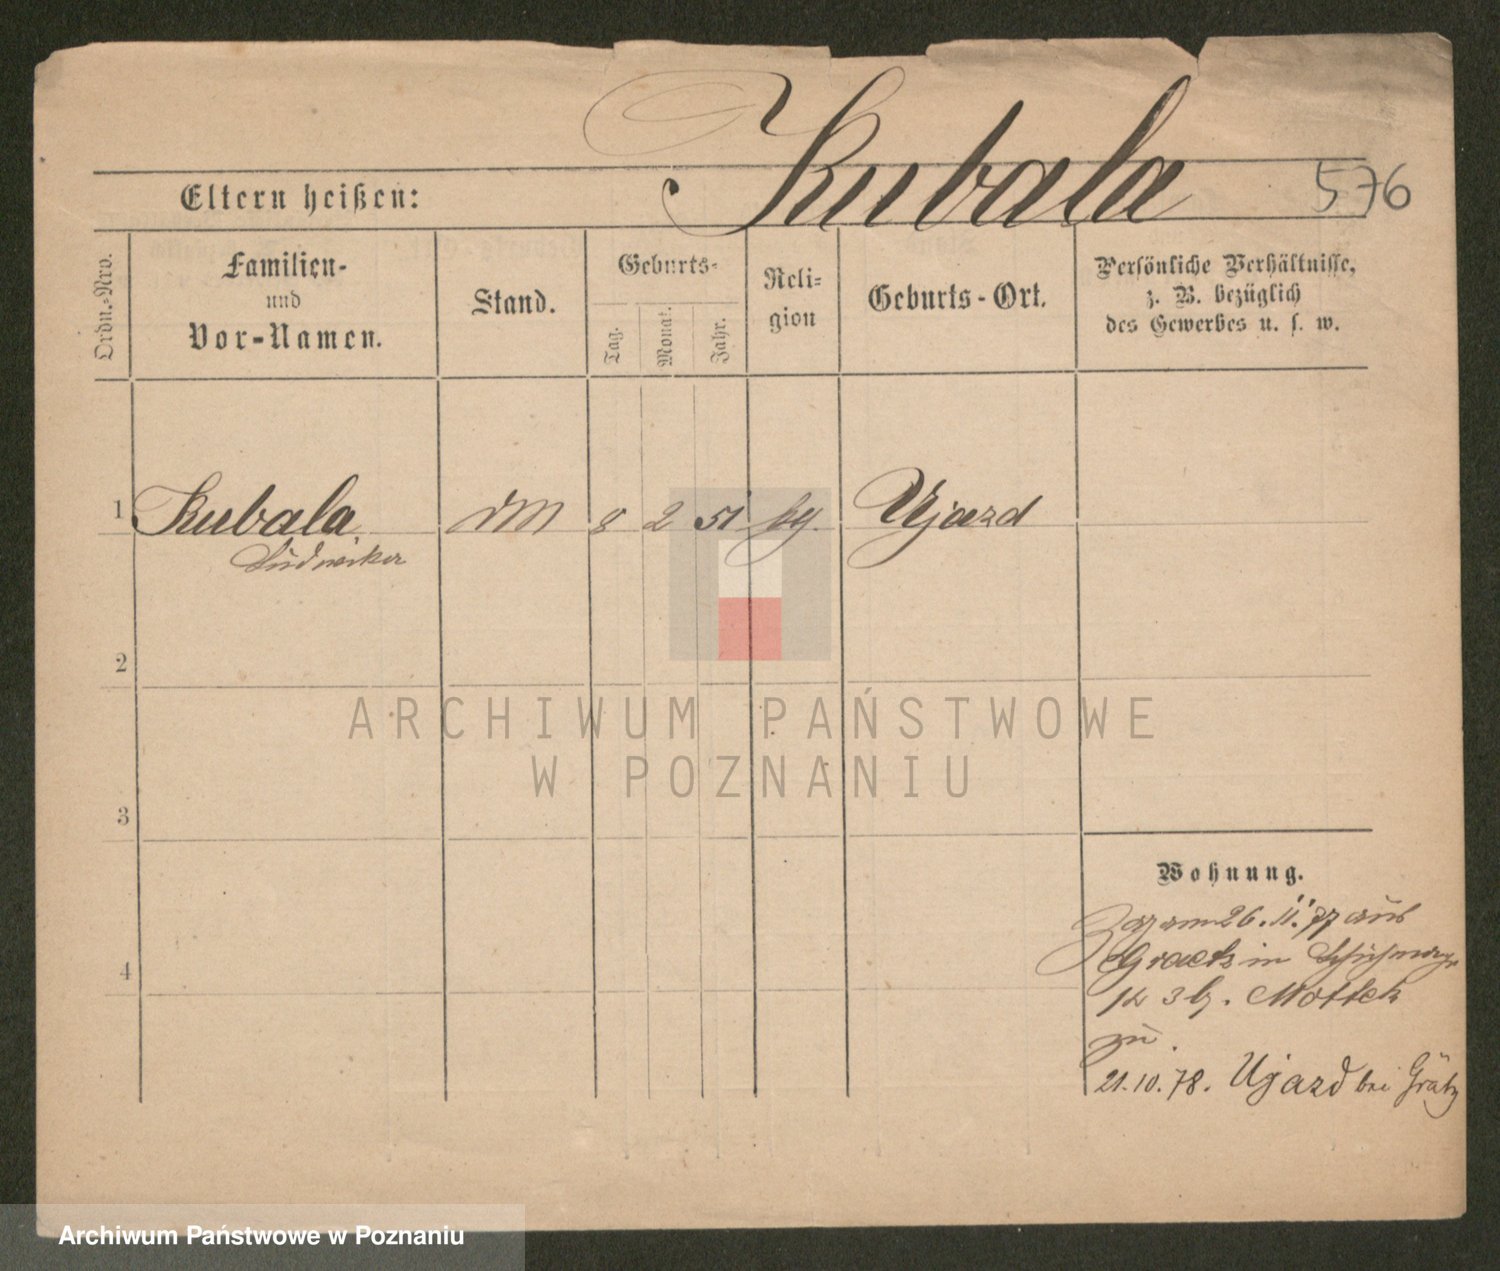 Kubala
576
Eltern heißen:
Ordn.-Nro.
Familien-
und
Vor-Namen.
Stand.
Geburts-
Tag.
Monat.
Jahr.
Reli-
gion
Geburts-Ort.
Persönliche Verhältnisse,
z. B. bezüglich
des Gewerbes u. s. w.
1 Kubala DM 8 2 51 kg. Ujazd
Ludwika
2
ARCHIWUM PAŃSTWOWE
W POZNANIU
3
Wohnung.
Zog am 26.11.77 aus
Graetz in
12 3 b. Mottek
zu.
4
21.10.78. Ujazd bei Grätz
Archiwum Państwowe w Poznaniu